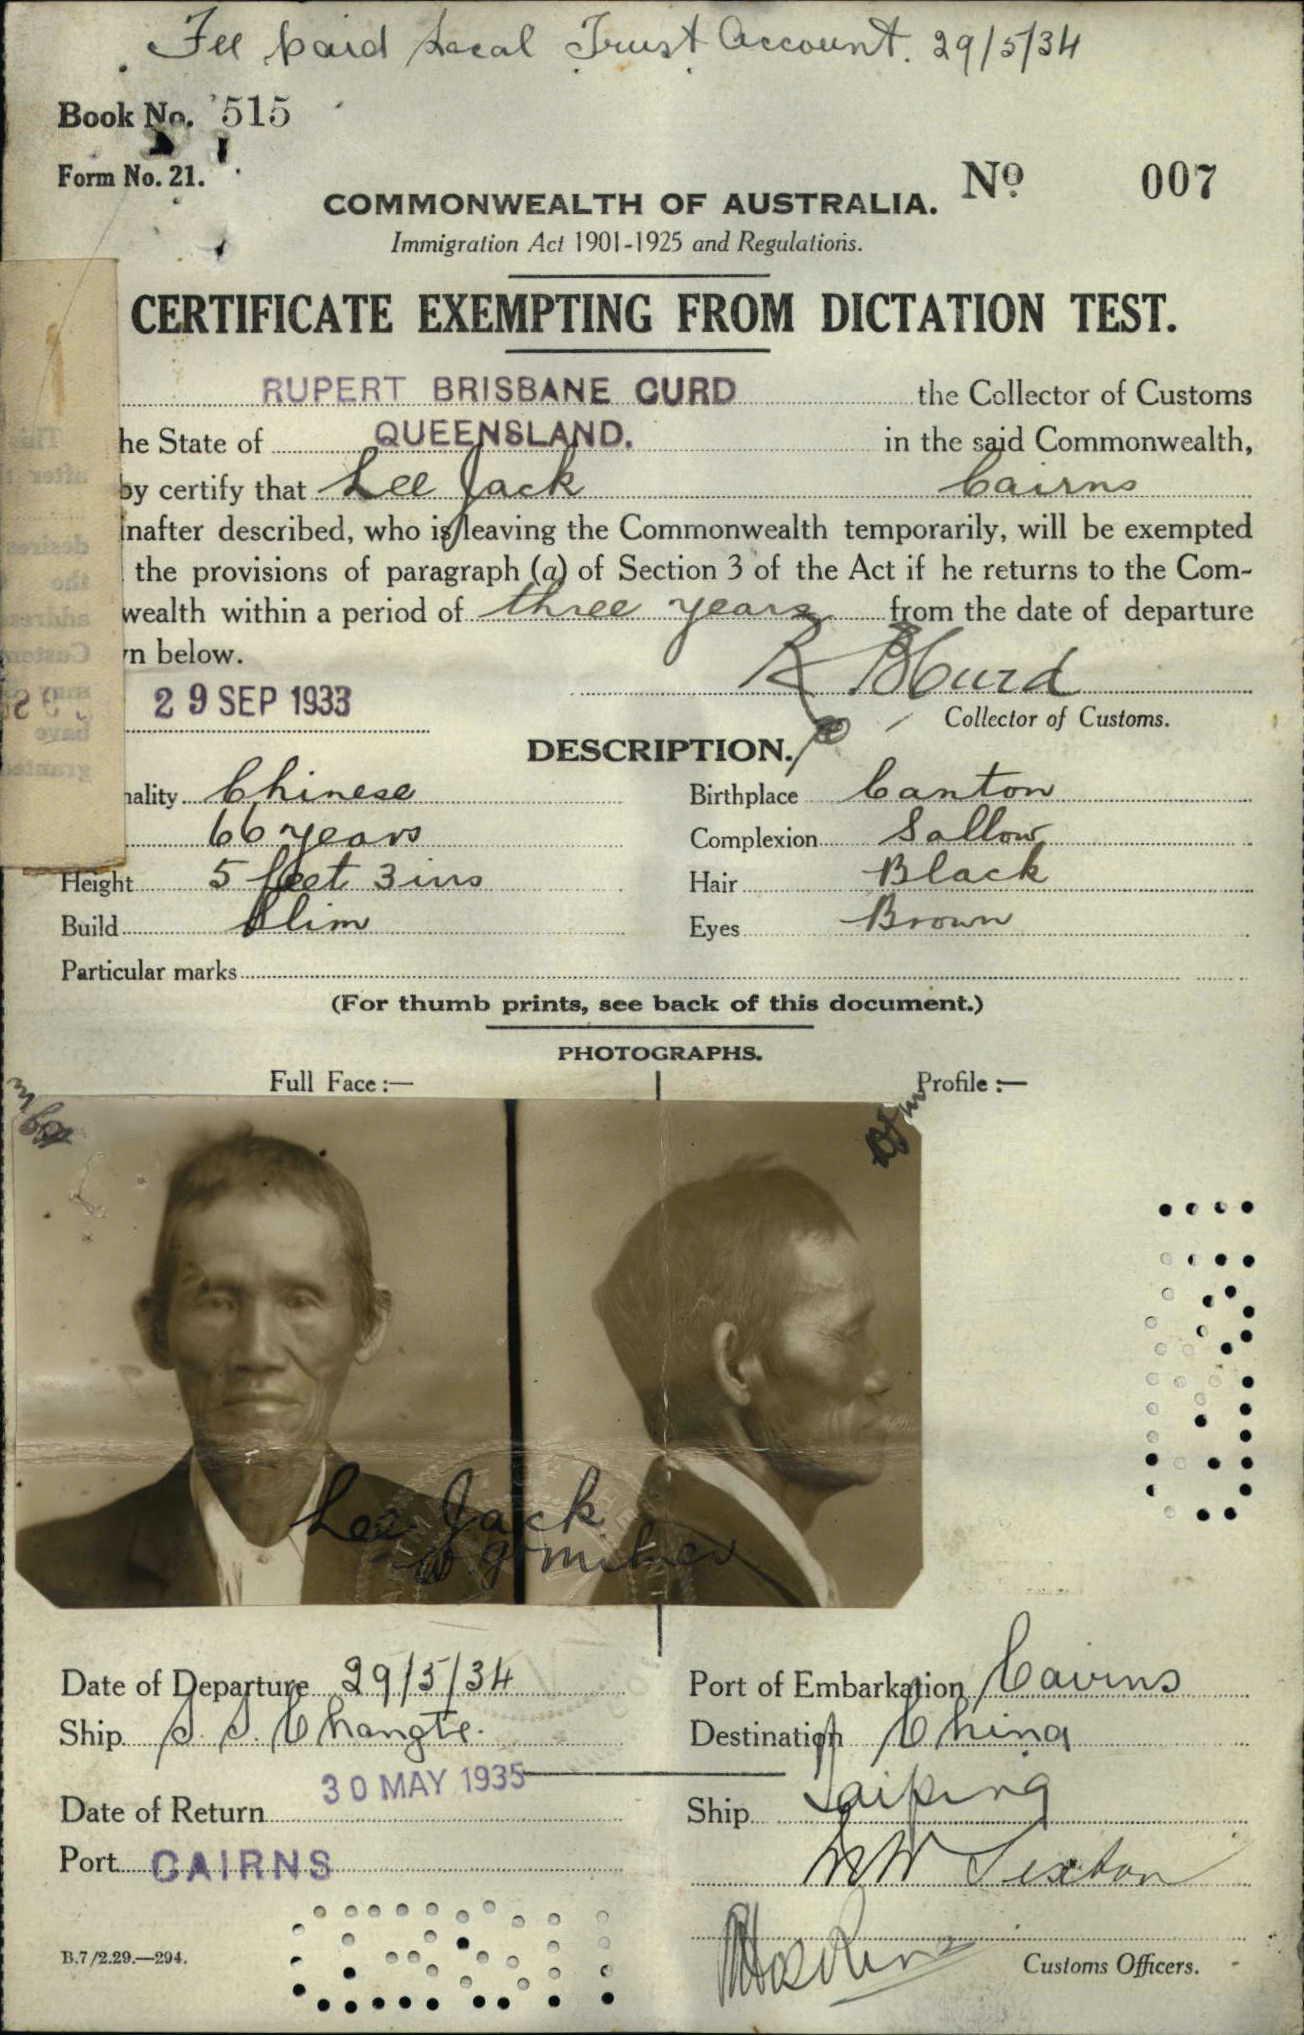 Fee paid Local Trust Account. 29/5/34
Book No. 515
Form No. 21.
No 007
COMMONWEALTH OF AUSTRALIA.
Immigration Act 1901-1925 and Regulations.
CERTIFICATE EXEMPTING FROM DICTATION TEST.
RUPERT BRISBANE CURD the Collector of Customs
he State of QUEENSLAND. in the said Commonwealth,
by certify that Lee Jack Cairns
inafter described, who is leaving the Commonwealth temporarily, will be exempted
the provisions of paragraph (a) of Section 3 of the Act if he returns to the Com-
wealth within a period of three years from the date of departure
n below.
R B Curd
29 SEP 1933
Collector of Customs.
DESCRIPTION.
nality Chinese Birthplace Canton
66 years Complexion Sallow
Height 5 feet 3 ins Hair Black
Build Slim Eyes Brown
Particular marks
(For thumb prints, see back of this document.)
PHOTOGRAPHS.
Full Face :— Profile :—
Lee Jack
W. G. Milner
Date of Departure 29/5/34 Port of Embarkation Cairns
Ship S. S. Changte. Destination China
Date of Return 30 MAY 1935 Ship Taiping
Port CAIRNS
Sexton
B.7/2.29.—294.
Customs Officers.